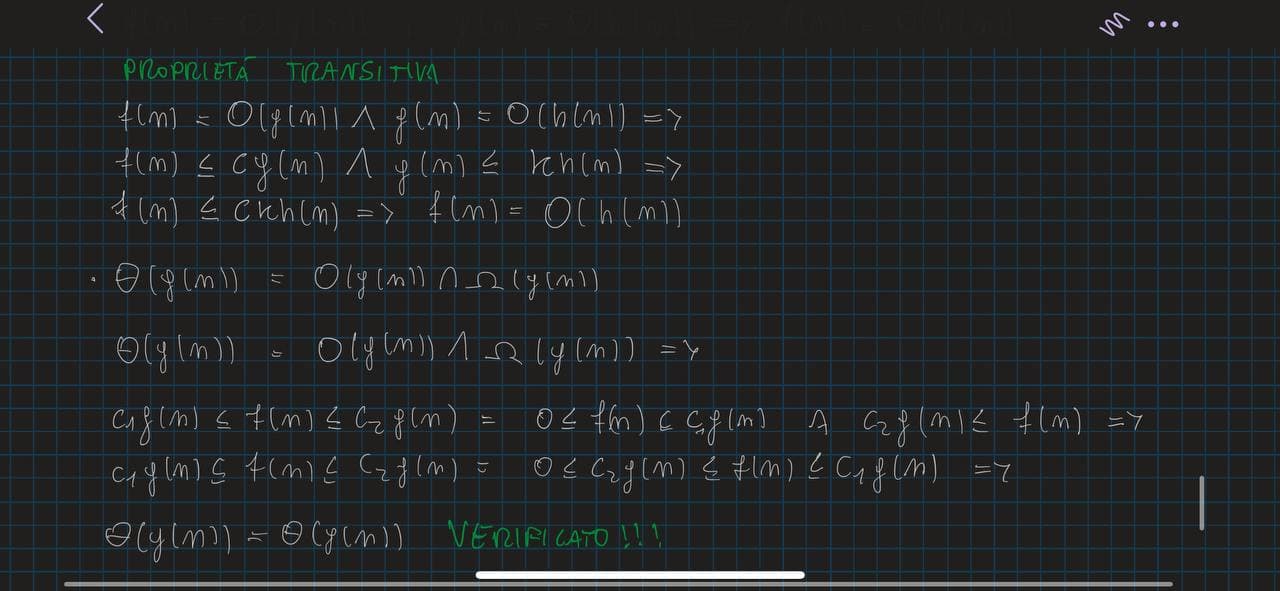 PROPRIETÁ TRANSITIVA
f(n) = O(g(n)) ∧ g(n) = O(h(n)) =>
f(n) ≤ cg(n) ∧ g(n) ≤ kh(n) =>
f(n) ≤ ckh(n) => f(n) = O(h(n))
· Θ(g(n)) = O(g(n)) ∩ Ω(g(n))
Θ(g(n)) = O(g(n)) ∧ Ω(g(n)) =>
c₁g(n) ≤ f(n) ≤ c₂g(n) = 0 ≤ f(n) ≤ c₁g(n) ∧ c₂g(n) ≤ f(n) =>
c₁g(n) ≤ f(n) ≤ c₂g(n) = 0 ≤ c₂g(n) ≤ f(n) ≤ c₁g(n) =>
Θ(g(n)) = Θ(g(n)) VERIFICATO!!!